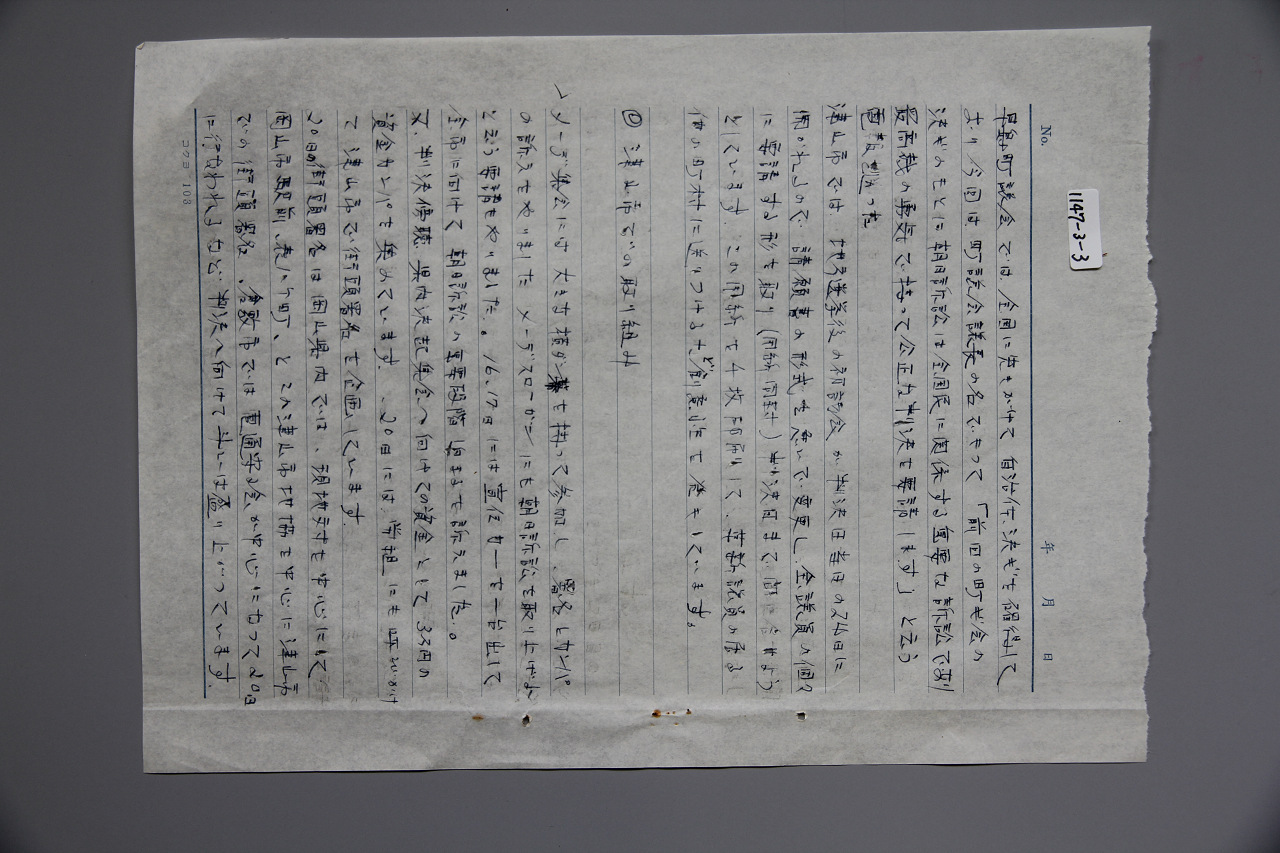 1147-3-3
No.
年 月 日
早島町議会では全国に先をかけて自治体決ギを獲得して
おり今回は町議会議長の名でもって「前回の町ギ会の
決ギのもとに朝日訴訟を全国民に関係する重要な訴訟で有り
最高裁の勇気で持って公正な判決を要請します」と云う
電報を打った
津山市では 地方選挙後の初議会が判決日当日の24日に
開かれるので 請願書の形式を急いで変更し 全議員の個々
に要請する形を取り(同紙同封)判決日までに間に合せよう
としています。この用紙を千枚印刷して、革新議員の居る
他の町村に送りつけるなど創意性を発キしています。
◎ 津山市での取り組み
メーデ集会には大きな旗を持って参加し、署名とカンパ
の訴えをやりました メーデスローガンにも朝日訴訟を取り上げよ
と云う要請もやりました。16、17日には宣伝カーを一台出して
全市に向けて 朝日訴訟の重要段階 にきて訴えました。
又、判決傍聴 県内決起集会へ向けての資金として 33円の
資金カンパを集めています。、20日には 労組にも呼びかけ
て 津山市で街頭署名を企画しています。
20日の街頭署名は岡山県内では、頭 対を中心にして
岡山市駅前、表八ケ町、とこの津山市地協を中心に津山市
での街頭署名、倉敷市では 患者同盟 が中心になって20日
に行なわれるなど 判決へ向けて斗いは盛り上がっています。
コクヨ 103